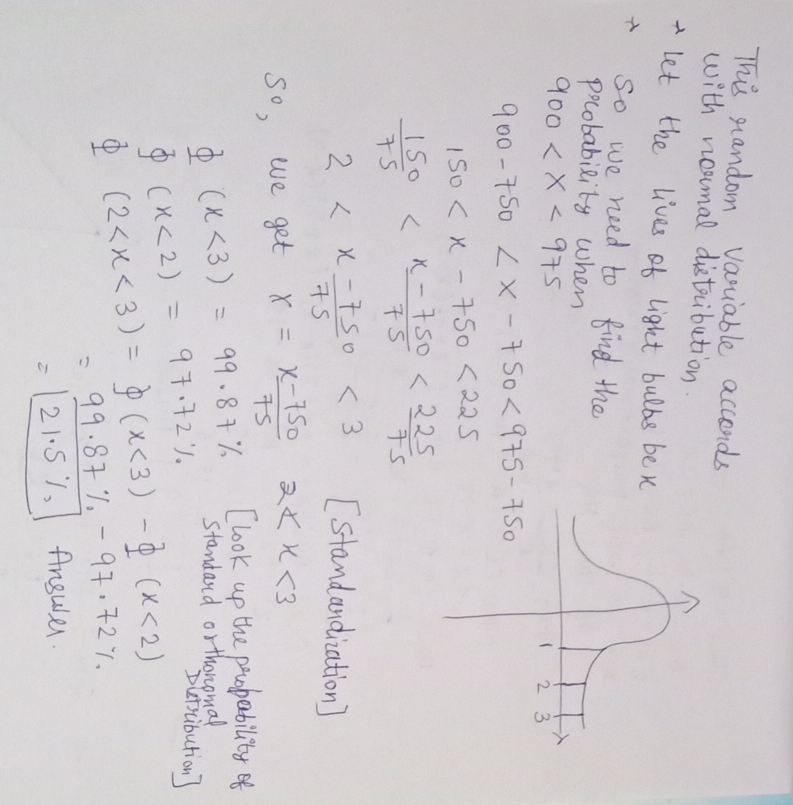 This random variable accords
with normal distribution.
* let the lives of light bulbs be x
* So we need to find the
probability when
900 < X < 975
900 - 750 < X - 750 < 975 - 750
150 < x - 750 < 225
150/75 < x - 750/75 < 225/75
2 < x - 750/75 < 3 [Standardization]
So, we get x = x-750/75 2 < x < 3
ϕ (x < 3) = 99.87% [look up the probability of
ϕ (x < 2) = 97.72% Standard orthonomal
Distribution]
ϕ (2 < x < 3) = ϕ (x < 3) - ϕ (x < 2)
= 99.87% - 97.72%
= 21.5% Answer.
1 2 3